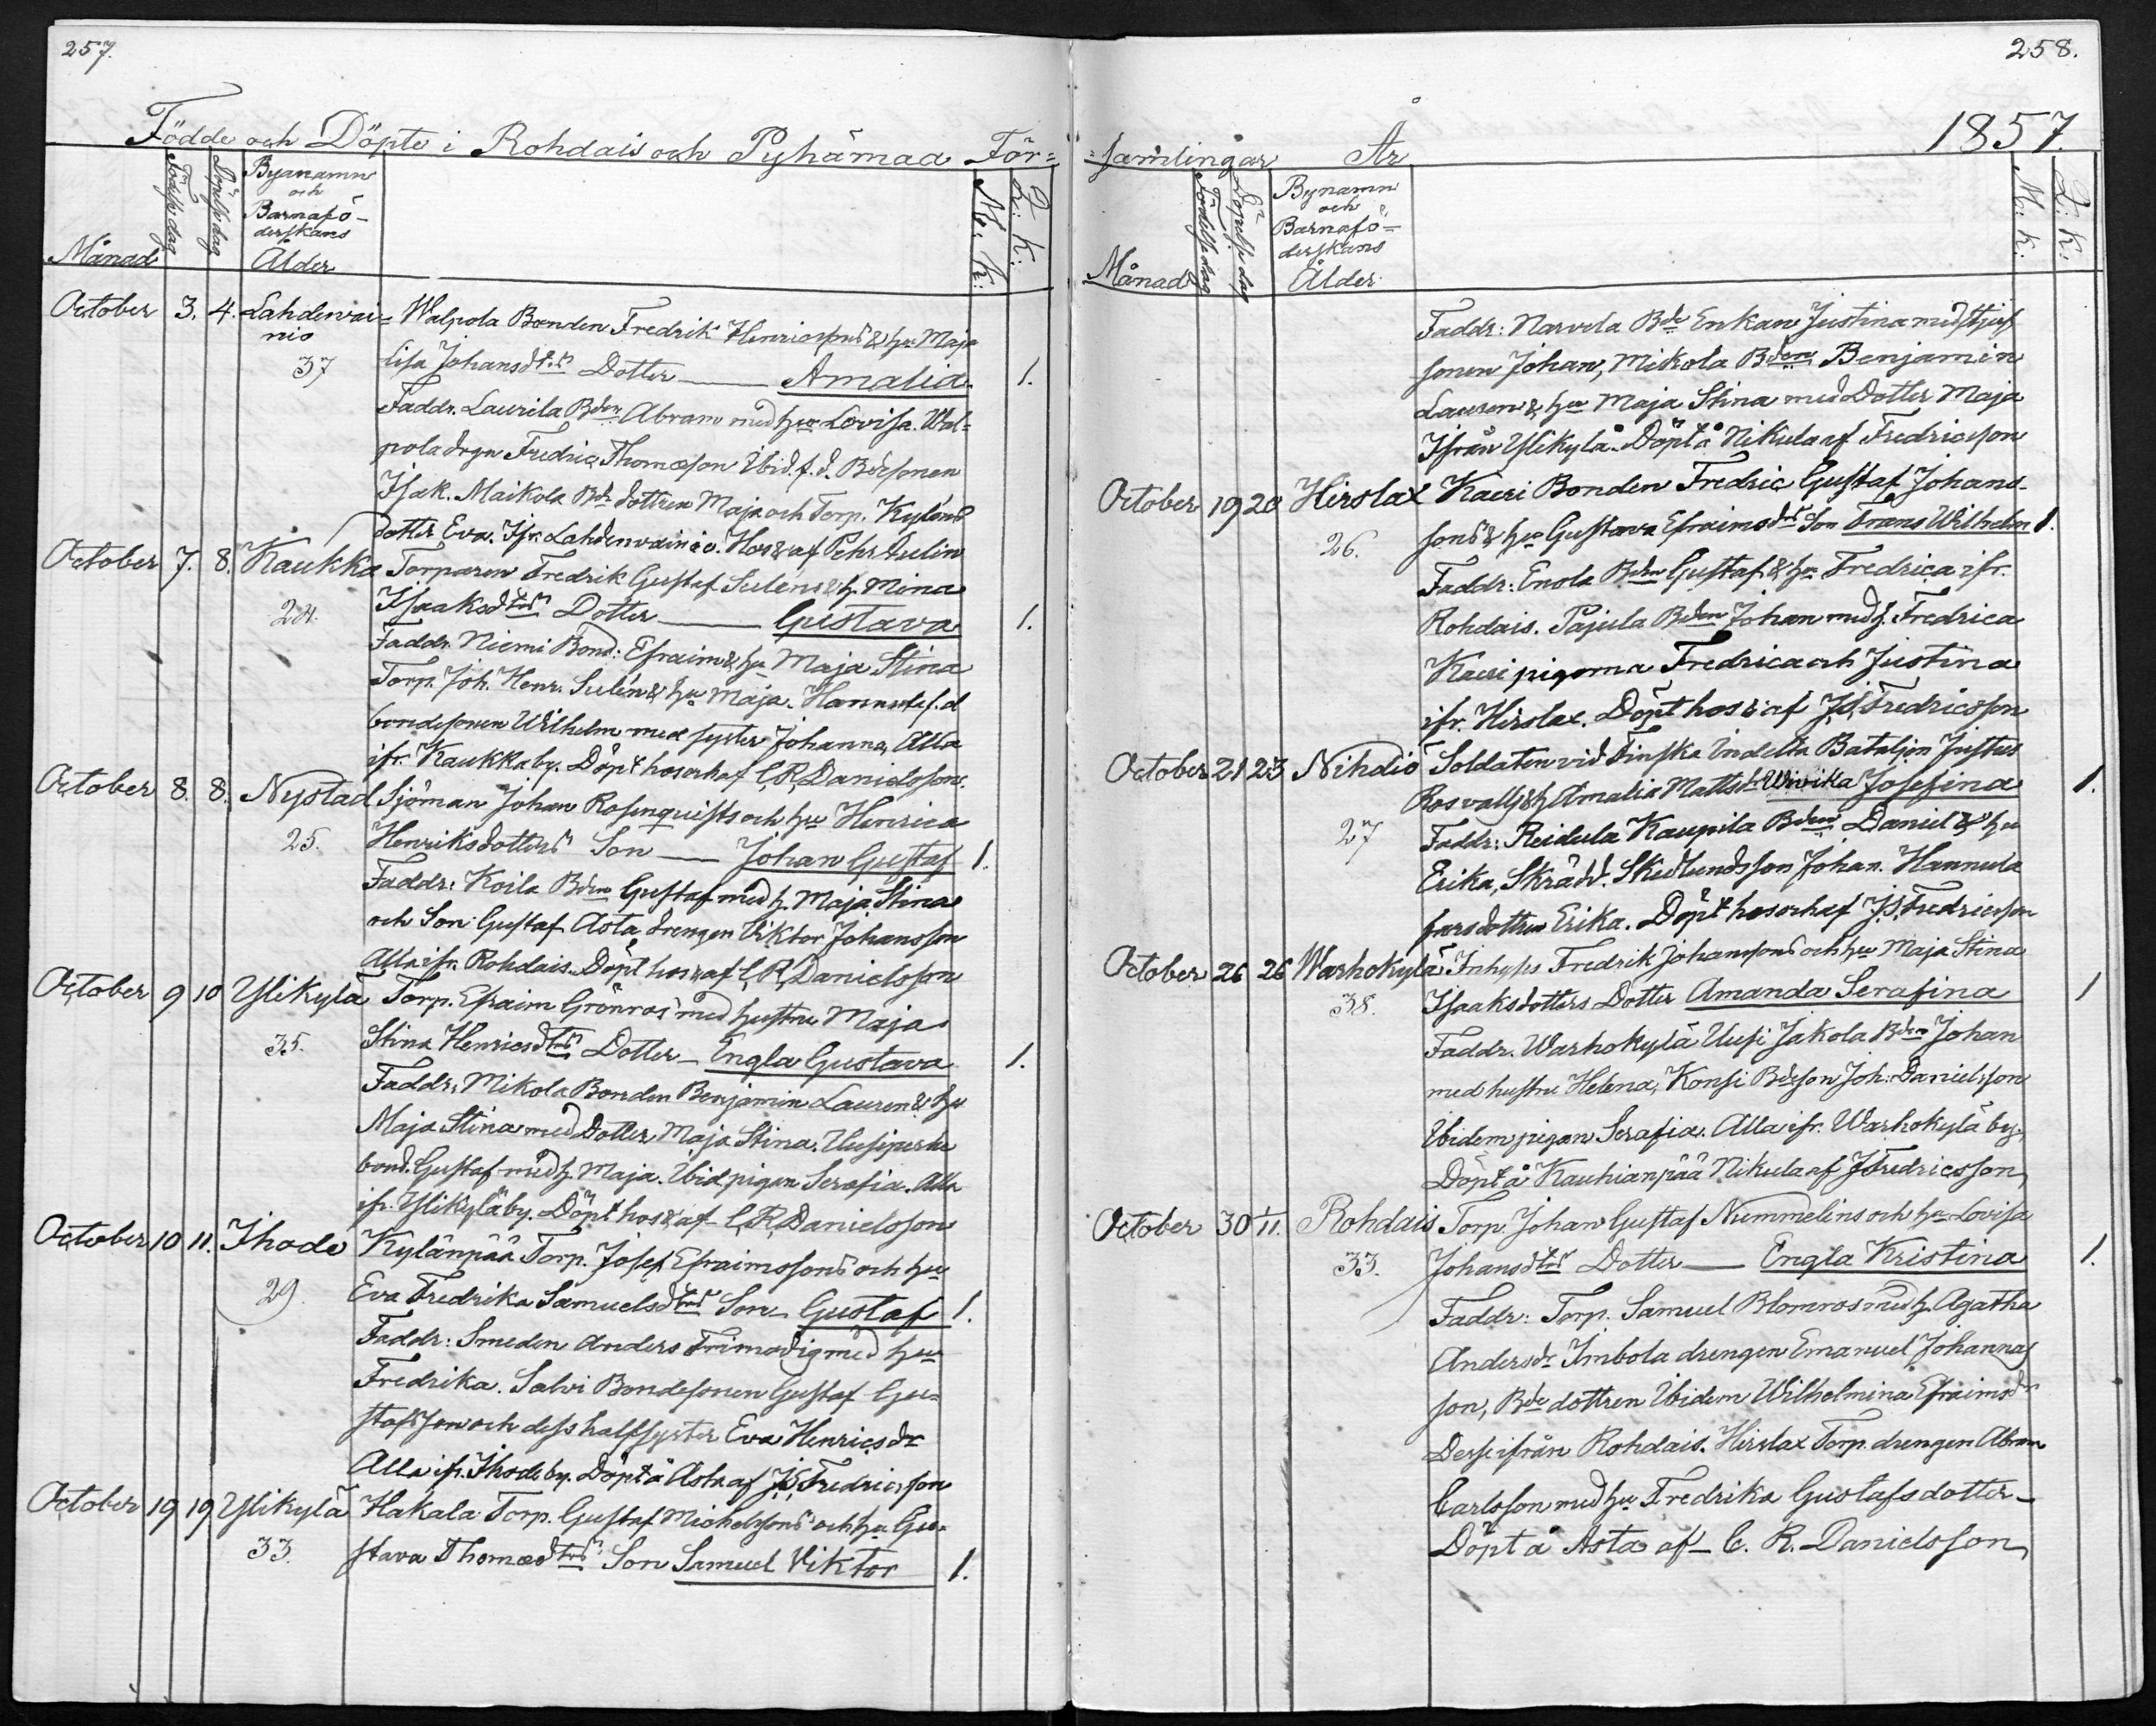 257.
Födde och Döpte i Rohdais och Pyhämaa För=
Månad
Födelse dag
Döpelse dag
Byanamn
och
Barnafö-
derskans
Ålder
M: K:
Q: K:
October 3. 4. Lahdenvai= Walpola Bonden Fredrik Henricssons & hu Maja
nio
37 Lisa Johansdtrs Dotter — Amalia. 1.
Faddr. Laurila Bden Abram med hu Lovisa. Wal=
pola drgn Fredric Thomasson Ibid. f. d. Bdesonen
Isak. Maikola Bde dottren Maja och Torp. Kyléns
dotter Eva. Ifr. Lahdenvainio. Hos & af Pehr Sulin
October 7. 8. Kaukka Torparen Fredrik Gustaf Sulens & h. Mina
24. Isaaksdtrs Dotter — Gustava 1.
Faddr. Niemi Bond: Efraim & hu Maja Stina
Torp. Joh. Henr. Sulén & hu Maja. Hannula f. d
bondesonen Wilhelm med syster Johanna, Alla
ifr. Kaukka by. Döpt hos och af C. R. Danielsson.
October 8. 8. Nystad Sjöman Johan Rosenquists och hu Henrica
25. Henriksdotters Son — Johan Gustaf 1.
Faddr: Koila Bden Gustaf med h. Maja Stina
och Son Gustaf Asta drengen Viktor Johansson
Alla ifr. Rohdais. Döpt hos & af C. R. Danielsson
October 9 10 Ylikylä Torp. Efraim Grönros med hustru Maja
35. Stina Henricsdtrs Dotter — Engla Gustava 1.
Faddr. Mikola Bonden Benjamin Lauren & hu
Maja Stina med Dotter Maja Stina. Uusiperhe
bond. Gustaf med h. Maja. Ibid pigan Serafia. Alla
ifr. Ylikylä by. Döpt hos & af C. R. Danielsson
October 10 11. Ihode Kylänpää Torp. Josef Efraimssons och hu
29. Eva Fredrika Samuelsdtrs Son — Gustaf 1.
Faddr: Smeden Anders Frimodig med hu
Fredrika. Salvi Bondesonen Gustaf Gu=
stafsson och dess halfsyster Eva Henricsdr
Alla ifr. Ihode by. Döpt å Asta af J. S. Fredricsson
October 19 19 Ylikylä Hakala Torp. Gustaf Michelssons och hu Gu=
33. stava Thomasdtrs Son Samuel Viktor 1.
258.
=samlingar År 1857.
Månad
Födelse dag
Döpelse dag
Bynamn
och
Barnafö=
derskans
Ålder
M: K:
Q: K:
Faddr: Narvela Bde Enkan Justina med stjuf
sonen Johan, Mikola Bden Benjamin
Lauren & hu Maja Stina med Dotter Maja
Ifrån Ylikylä. Döpt å Nikula af Fredricsson
October 19 20 Hirslax Kaeri Bonden Fredric Gustaf Johans-
26. sons & hu Gustava Efraimsdrs Son Frans Wilhelm 1.
Faddr: Enola Bden Gustaf & hu Fredrica ifr.
Rohdais. Pajula Bden Johan med h. Fredrica
Kaeri pigorna Fredrica och Justina
ifr. Hirslax. Döpt hos & af J. S. Fredricsson
October 21 23 Nihdiö Soldaten vid Finska Indelta Bataljon Justus
Rosvalls & h Amalia Mattsdr Ulrika Josefina 1.
27 Faddr: Reidula Kaupila Bden Daniel & hu
Erika, Skrädd. Skedlundsson Johan. Hannula
fars dottren Erika. Döpt hos och af J. S. Fredricsson
October 26 26 Warhokylä Inhyses Fredrik Johanssons och hu Maja Stina
38. Isaaksdotters Dotter Amanda Serafina 1
Faddr. Warhokylä Uusi Jakola Bden Johan
med hustru Helena, Konsi Bdeson Joh: Danielsson
Ibidem pigan Serafia. Alla ifr. Warhokylä by.
Döpt å Kauhianpää Nikula af J. Fredricsson
October 30 1/11. Rohdais Torp. Johan Gustaf Nummelins och hu Lovisa
33. Johansdtrs Dotter — Engla Kristina 1.
Faddr: Torp. Samuel Blomros med h. Agatha
Andersdr Imbola drengen Emanuel Johannes
son, Bde dottren Ibidem Wilhelmina Efraimsdr
Desse ifrån Rohdais. Hirslax Torp. drengen Abram
Carlsson med hu Fredrika Gustafsdotter—
Döpt å Asta af C. R. Danielsson